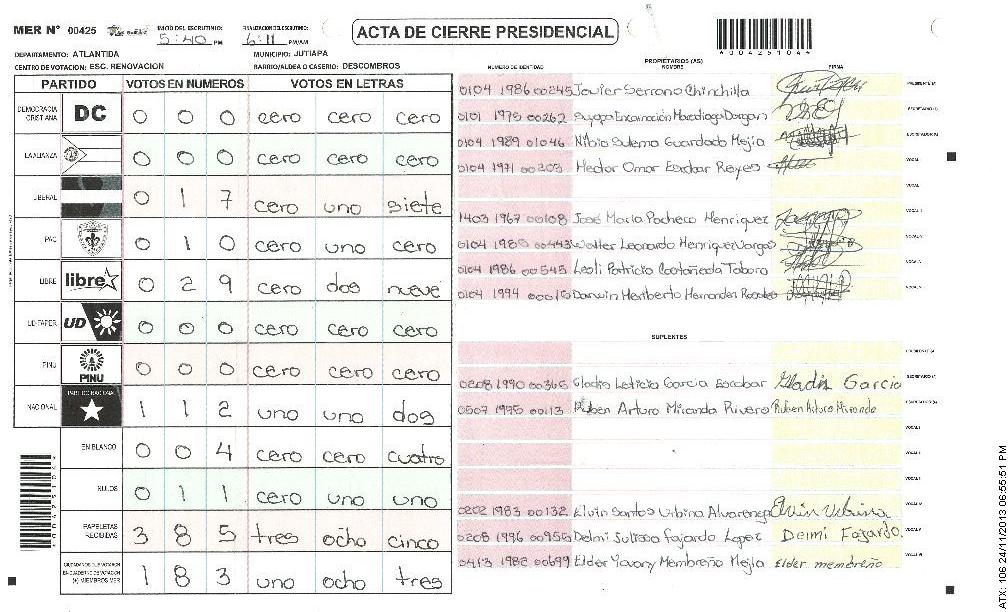 MER Nº 00425 INICIO DEL ESCRUTINIO: 5:40 PM FINALIZACION DEL ESCRUTINIO: 6:11 PM/AM ACTA DE CIERRE PRESIDENCIAL
DEPARTAMENTO: ATLANTIDA MUNICIPIO: JUTIAPA
CENTRO DE VOTACION: ESC. RENOVACION BARRIO/ALDEA O CASERIO: DESCOMBROS
PARTIDO VOTOS EN NUMEROS VOTOS EN LETRAS
DEMOCRACIA CRISTIANA DC 0 0 0 cero cero cero
LA ALIANZA 0 0 0 cero cero cero
LIBERAL 0 1 7 cero uno siete
PAC 0 1 0 cero uno cero
LIBRE libre 0 2 9 cero dos nueve
UD-FAPER UD 0 0 0 cero cero cero
PINU PINU 0 0 0 cero cero cero
NACIONAL PARTIDO NACIONAL 1 1 2 uno uno dos
EN BLANCO 0 0 4 cero cero cuatro
NULOS 0 1 1 cero uno uno
PAPELETAS RECIBIDAS 3 8 5 tres ocho cinco
CIUDADANOS QUE VOTARON EN CUADERNO DE VOTACION (+) MIEMBROS MER 1 8 3 uno ocho tres
PROPIETARIOS (AS)
NUMERO DE IDENTIDAD NOMBRE FIRMA
0104 1986 00245 Javier Serrano Chinchilla
0101 1975 00262
0104 1989 01046 Nibia Sulema Guardado Mejia
0104 1971 00203 Hector Omar Escobar Reyes
1403 1967 00108 José Maria Pacheco Henriquez
0104 1980 00443 Walter Leonardo Henriquez Vargas
0104 1986 00545 Lesli Patricia Castañeda Tabora
0104 1994 Darwin Heriberto Hernandez
SUPLENTES
0208 1990 00365 Gladis Leticia Garcia Escobar Gladis Garcia
0507 1995 00113 Ruben Arturo Miranda Rivera Ruben Arturo Miranda
0202 1983 00132 Elvin Santos Urbina Alvarenga Elvin Urbina
0208 1996 00955 Delmi Suyapa Fajardo Lopez Delmi Fajardo.
0413 1982 00699 Elder Yovany Membreño Mejia Elder membreño
ATX: 106 24/11/2013 06:55:51 PM